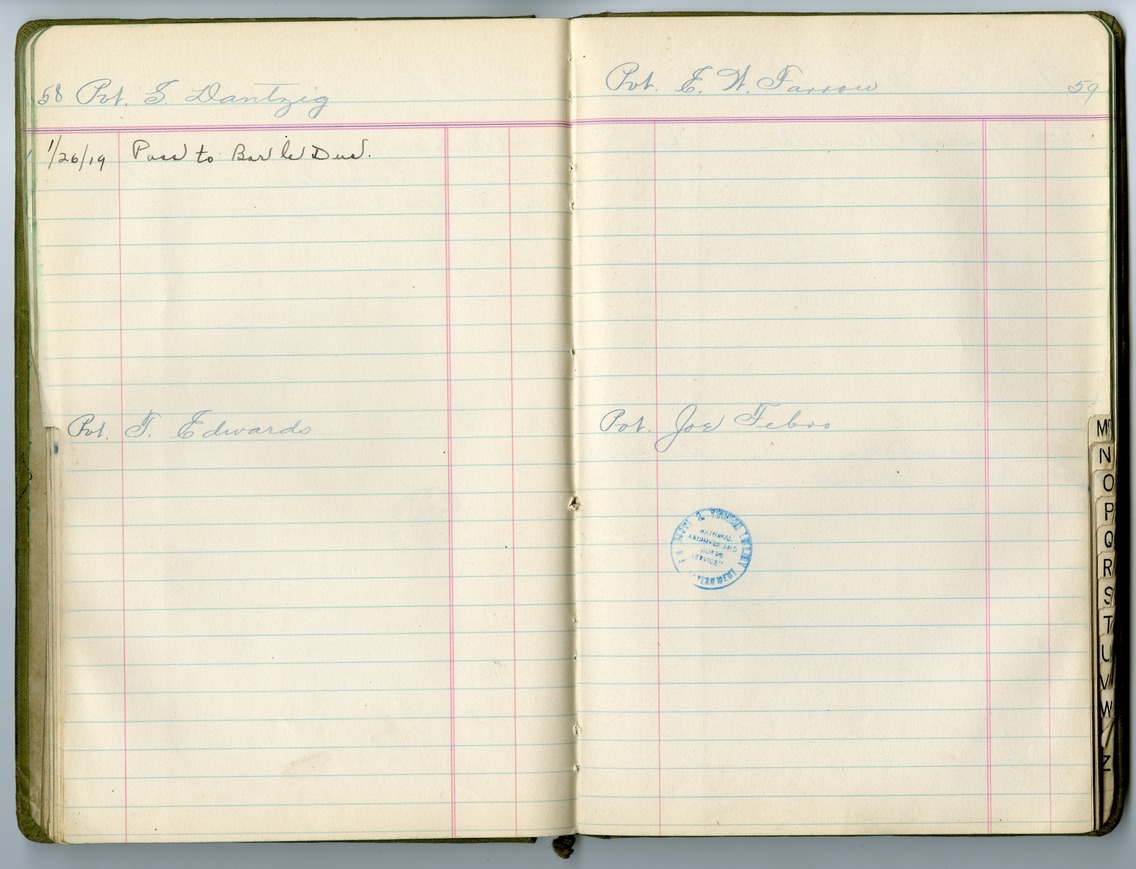 58 Pvt. S. Dantzig
1/26/19 Pass to Bar le Duc.
Pvt. T. Edwards
Pvt. E. W. Farrow 59
Pvt. Joe Febro
NATIONAL
ARCHIVES AND
SERVICE
M
N
O
P
Q
R
S
T
U
V
W
Z